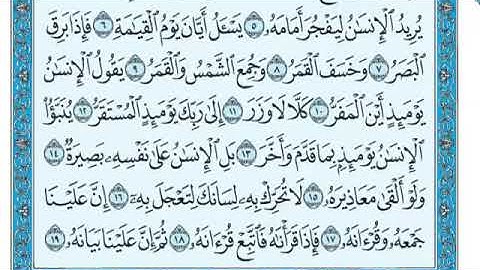 يُرِيدُ الْإِنسَـٰنُ لِيَفْجُرَ أَمَامَهُۥ ٥ يَسْـَٔلُ أَيَّانَ يَوْمُ الْقِيَـٰمَةِ ٦ فَإِذَا بَرِقَ
الْبَصَرُ ٧ وَخَسَفَ الْقَمَرُ ٨ وَجُمِعَ الشَّمْسُ وَالْقَمَرُ ٩ يَقُولُ الْإِنسَـٰنُ
يَوْمَئِذٍ أَيْنَ الْمَفَرُّ ١٠ كَلَّا لَا وَزَرَ ١١ إِلَىٰ رَبِّكَ يَوْمَئِذٍ الْمُسْتَقَرُّ ١٢ يُنَبَّؤُا
الْإِنسَـٰنُ يَوْمَئِذٍۭ بِمَا قَدَّمَ وَأَخَّرَ ١٣ بَلِ الْإِنسَـٰنُ عَلَىٰ نَفْسِهِۦ بَصِيرَةٌ ١٤
وَلَوْ أَلْقَىٰ مَعَاذِيرَهُۥ ١٥ لَا تُحَرِّكْ بِهِۦ لِسَانَكَ لِتَعْجَلَ بِهِۦٓ ١٦ إِنَّ عَلَيْنَا
جَمْعَهُۥ وَقُرْءَانَهُۥ ١٧ فَإِذَا قَرَأْنَـٰهُ فَاتَّبِعْ قُرْءَانَهُۥ ١٨ ثُمَّ إِنَّ عَلَيْنَا بَيَانَهُۥ ١٩